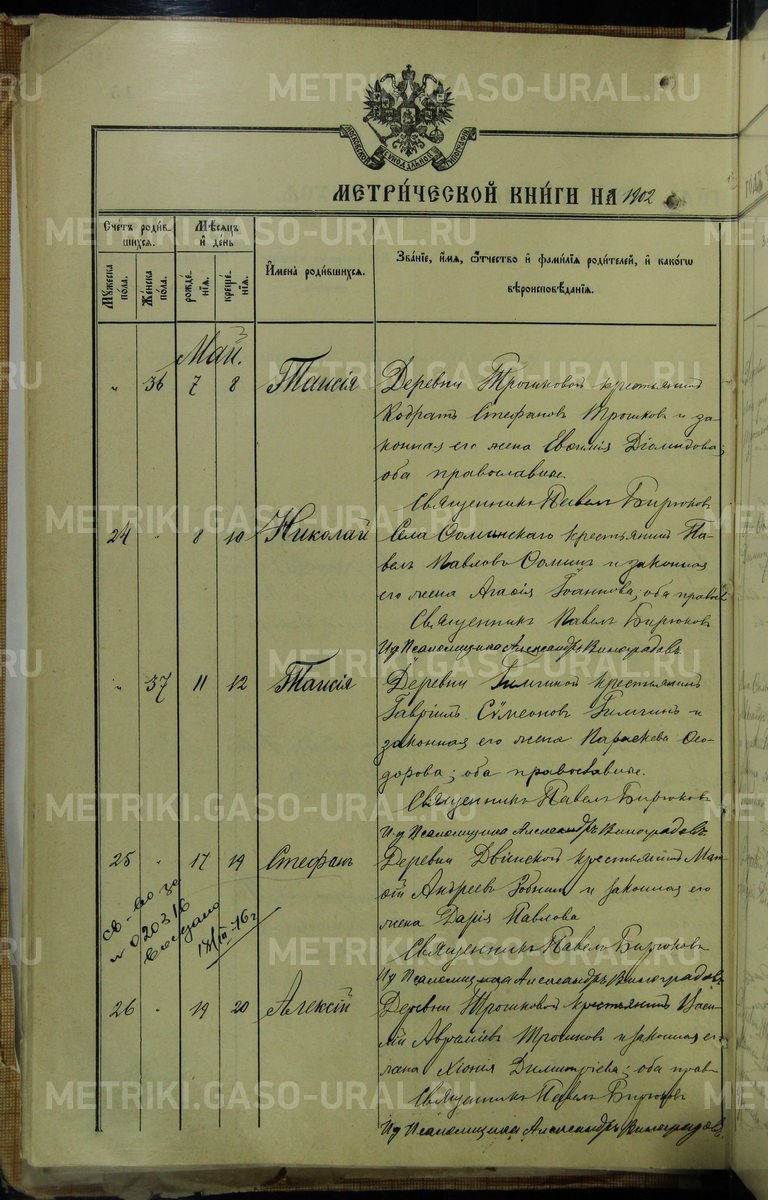 МОСКОВСКОЙ СѴНОДАЛЬНОЙ ТИПОГРАФІИ
МЕТРИ́ЧЕСКОЙ КНИ́ГИ НА 1902
Сче́тъ роди́в-
шихся.
Мѣ́сяцъ
и҆ де́нь
Му́жеска
по́ла.
Же́нска
по́ла.
рожде́-
нїя.
креще́-
нїя.
И҆мена̀ роди́вшихся.
Зва́нїе, и҆́мя, ѻ҆́тчество и҆ фами́лїя роди́телей, и҆ како́гѡ
вѣроисповѣ́данїя.
Май.
" 36 7 8 Таисія Деревни Трошковой крестьянинъ
Кодратъ Стефановъ Трошковъ и за-
конная его жена Евѳимія Діомидова;
оба православные.
Священникъ Павелъ Бирюковъ
24 " 8 10 Николай Села Ѳоминскаго крестьянинъ Па-
велъ Павловъ Ѳоминъ и законная
его жена Агаѳія Іоаннова; оба правос
Священникъ Павелъ Бирюковъ
Ид Псаломщика Александръ Виноградовъ
" 37 11 12 Таисія Деревни крестьянинъ
Гавріилъ Сѵмеоновъ и
законная его жена Параскева Ѳео-
дорова; оба православные.
Священникъ Павелъ Бирюковъ
Ид Псаломщика Александръ Виноградовъ
25 " 17 19 Стефанъ Деревни Двинской крестьянинъ Мат-
ѳій Андреевъ и законная его
жена Дарія Павлова
Священникъ Павелъ Бирюковъ
Ид Псаломщика Александръ Виноградовъ
св-во за
№ 020316
выдано
18/III-16 г
26 " 19 20 Алексій Деревни Трошковой крестьянинъ Васи-
лій Авраміевъ Трошковъ и законная его
жена Хіонія Димитріева; оба прав
Священникъ Павелъ Бирюковъ
Ид Псаломщика Александръ Виноградовъ
METRIKI.GASO-URAL.RU